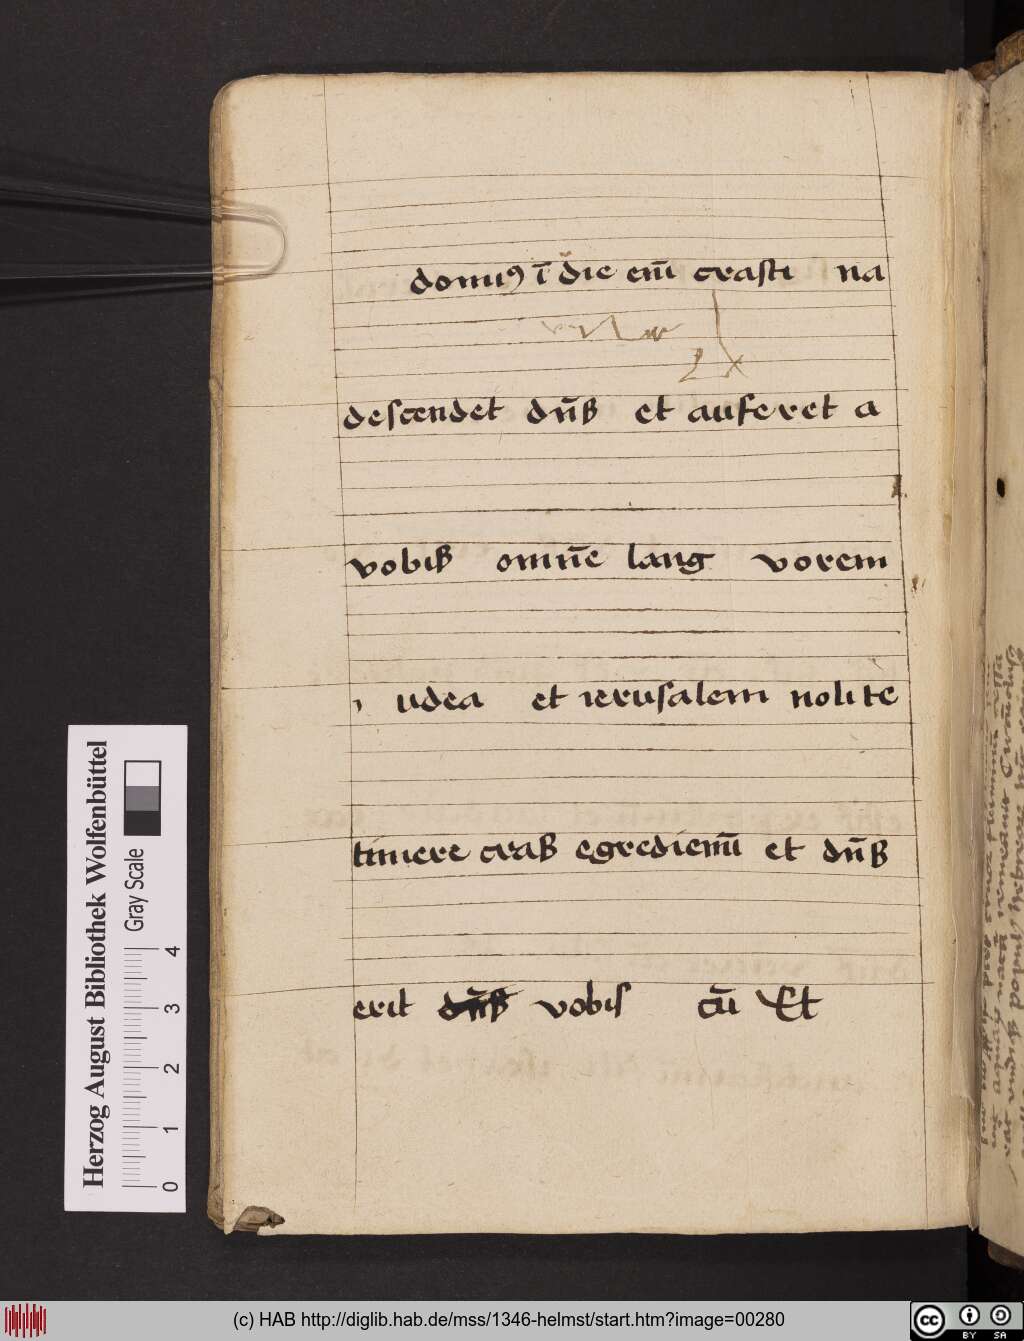 domꝰ ī die em̄ crasti na
descendet dn̄s et auferet a
vobis omn̄e lang vorem
i udea et ierusalem nolite
timere cras egrediem̄ et dn̄s
erit dn̄s vobis cū Et
Herzog August Bibliothek Wolfenbüttel
Gray Scale
0 1 2 3 4
(c) HAB http://diglib.hab.de/mss/1346-helmst/start.htm?image=00280
cc BY SA